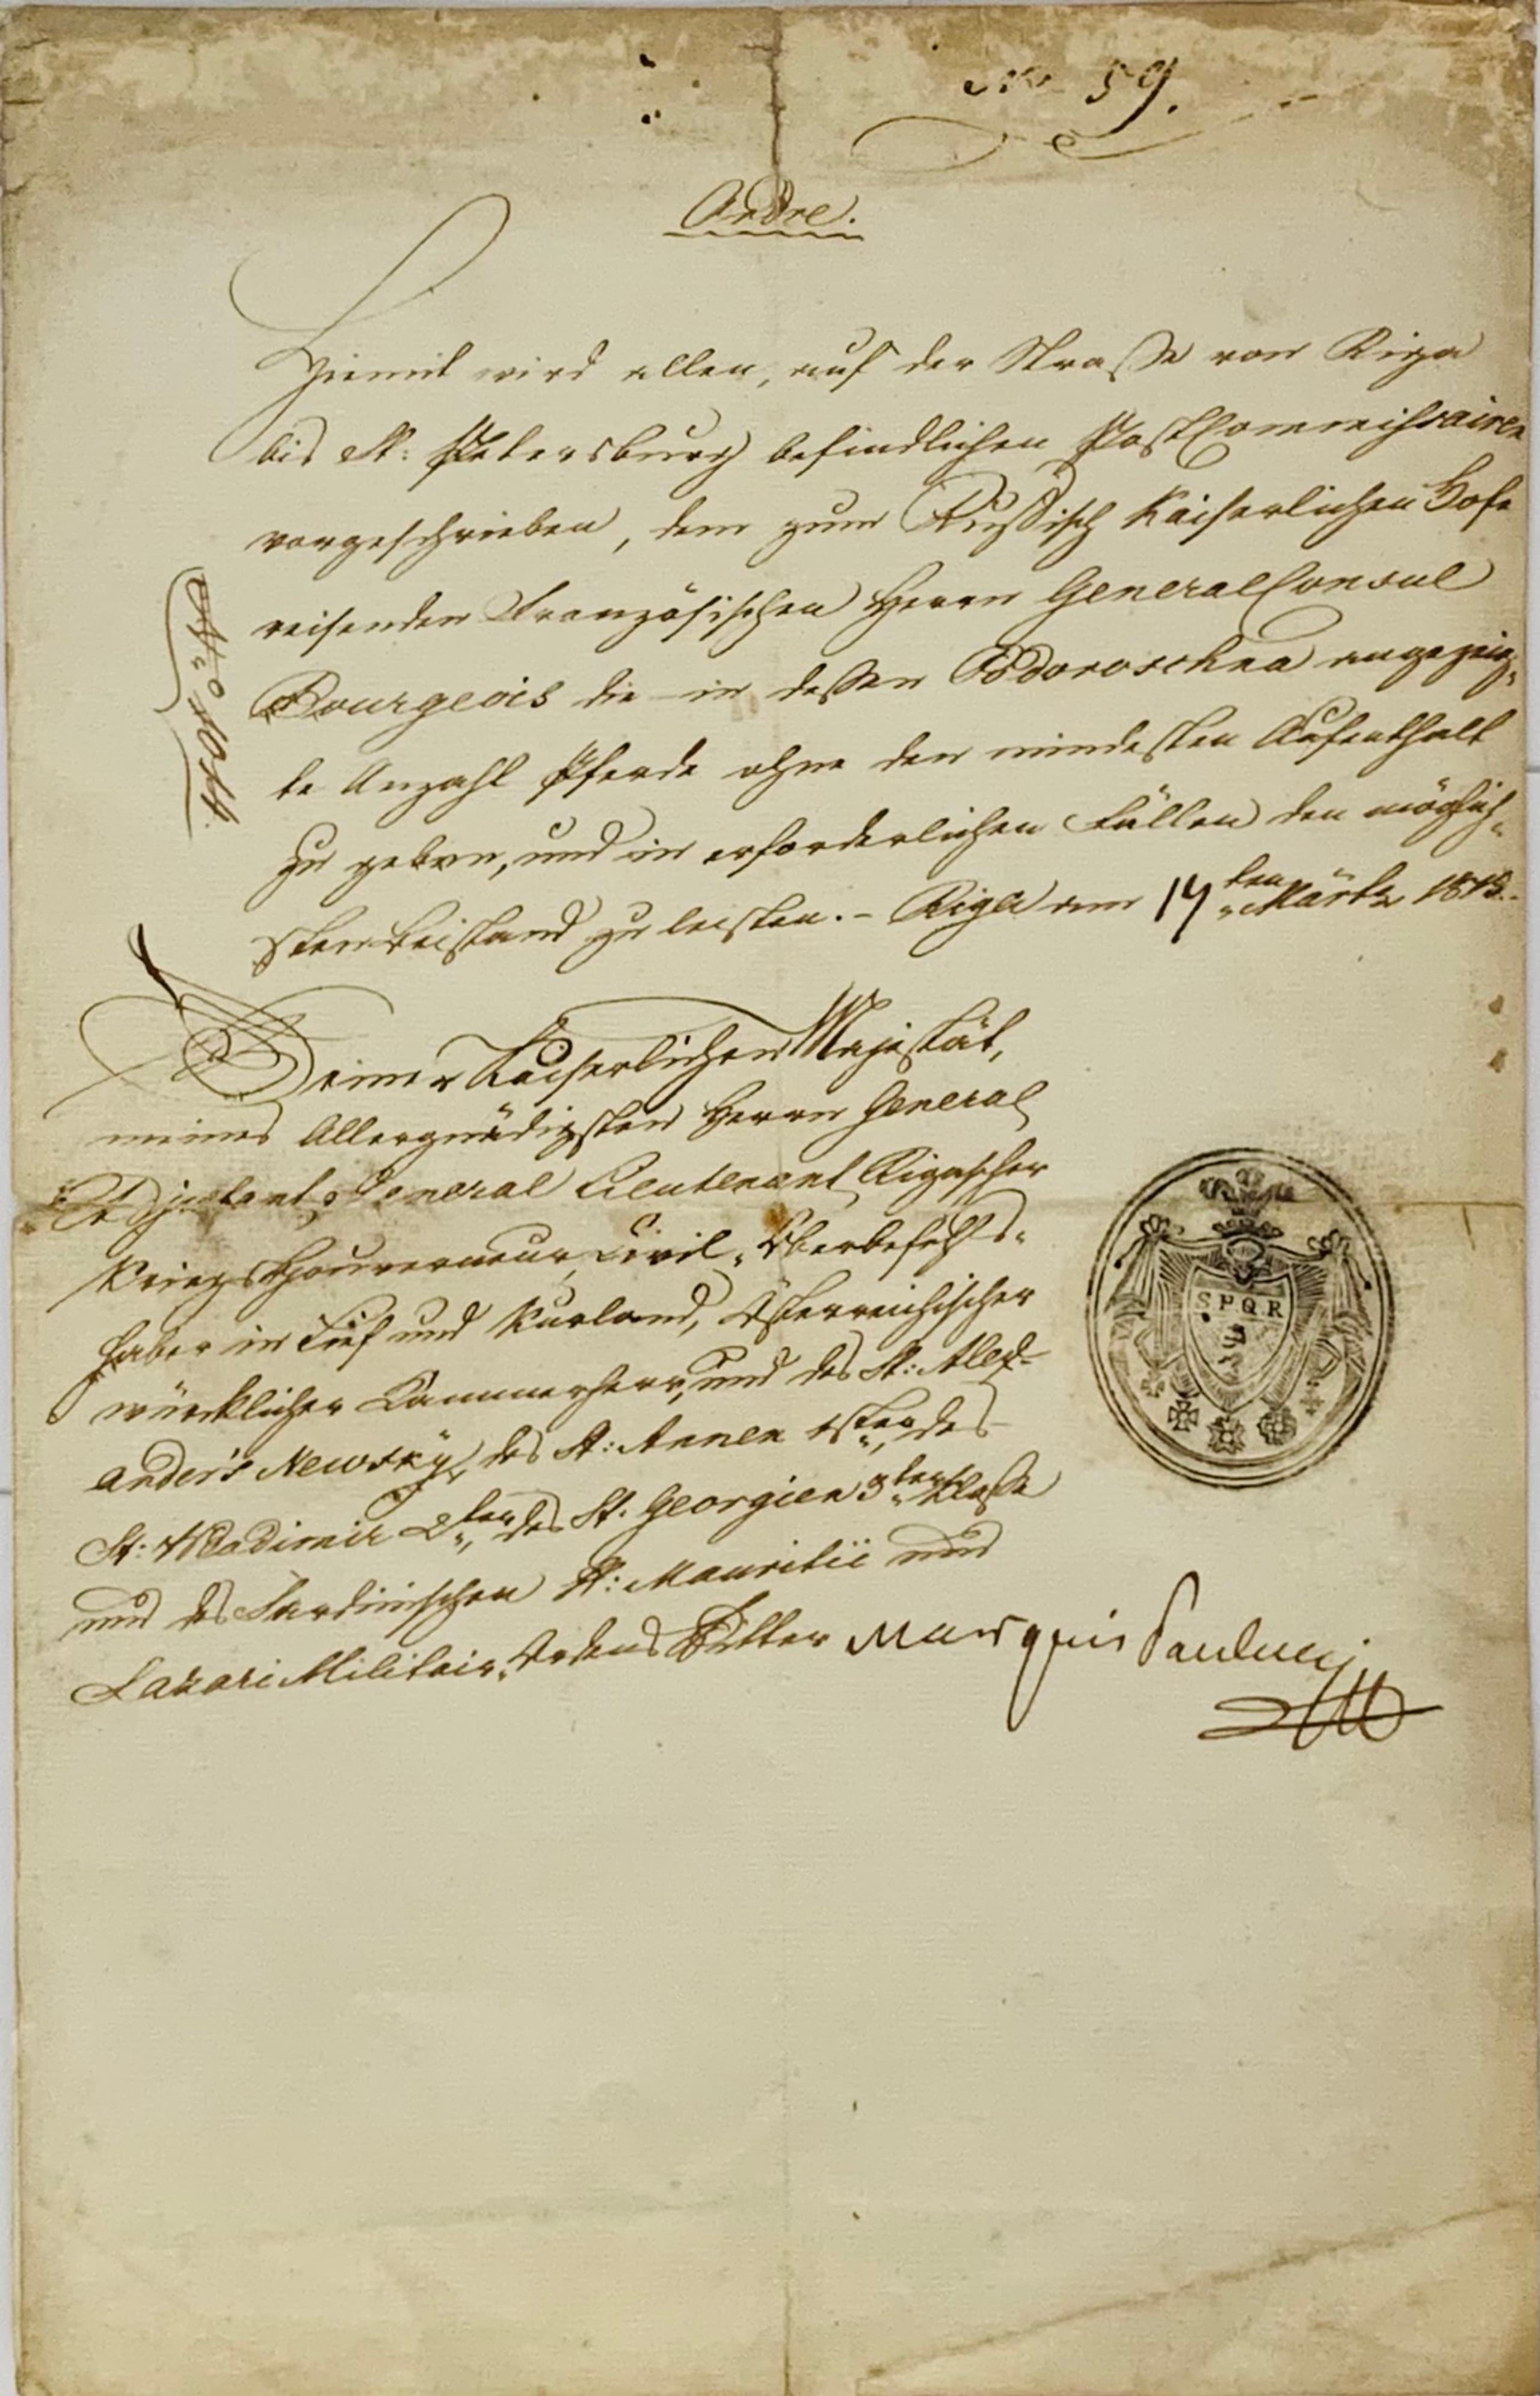 No 59.
Ordre.
Hiemit wird allen, auf der Straße von Riga
bis St: Petersburg befindlichen PostCommissairen
vorgeschrieben, dem zum Rußisch Kaiserlichen Hofe
reisenden Französischen Herrn GeneralConsul
Bourgeois die in deßen Podoroschna angezeig-
te Anzahl Pferde ohne den mindesten Aufenthalt
zu geben, und in erforderlichen Fällen den möglich-
sten Beistand zu leisten. - Riga den 14ten Märtz 1815.
Seiner Kaiserlichen Majestät,
meines Allergnädigsten Herrn General
Adjutant, General Lieutenant, Rigascher
Kriegs Gouverneur, Civil-Oberbefehls-
haber in Lief und Kurland, Österreichischer
würcklicher Kammerherr, und des St: Alex-
ander's Newsky, des St: Annen 1ster, des
St: Wladimir 2ter, des St. Georgien 3ter Klaße
und des Sardinischen St: Mauritii und
Lazari Militair-Ordens Ritter Marquis Paulucci
SPQR